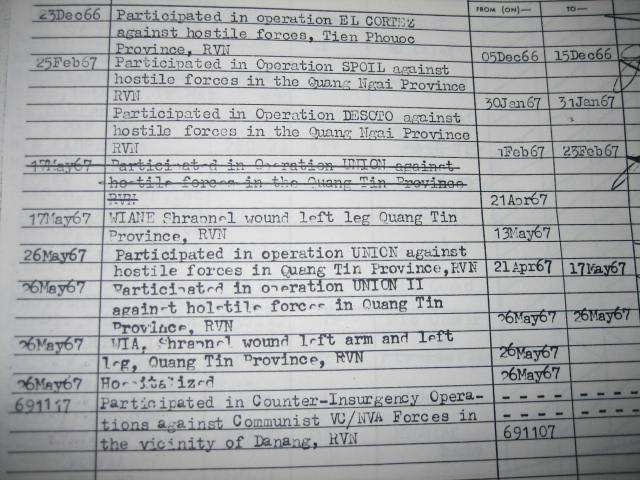 FROM (ON)— TO—
23Dec66 Participated in operation EL CORTEZ
against hostile forces, Tien Phouoc
Province, RVN 05Dec66 15Dec66
25Feb67 Participated in Operation SPOIL against
hostile forces in the Quang Ngai Province
RVN 30Jan67 31Jan67
Participated in Operation DESOTO against
hostile forces in the Quang Ngai Province
RVN 1Feb67 23Feb67
17May67 Participated in Operation UNION against
hostile forces in the Quang Tin Province
RVN 21Apr67
17May67 WIANE Shrapnel wound left leg Quang Tin
Province, RVN 13May67
26May67 Participated in operation UNION against
hostile forces in Quang Tin Province,RVN 21Apr67 17May67
26May67 Participated in operation UNION II
against hostile forces in Quang Tin
Province, RVN 26May67 26May67
26May67 WIA, Shrapnel wound left arm and left
leg, Quang Tin Province, RVN 26May67
26May67 Hospitalized 26May67
691117 Participated in Counter-Insurgency Opera- - - - - - - - -
tions against Communist VC/NVA Forces in
the vicinity of Danang, RVN 691107